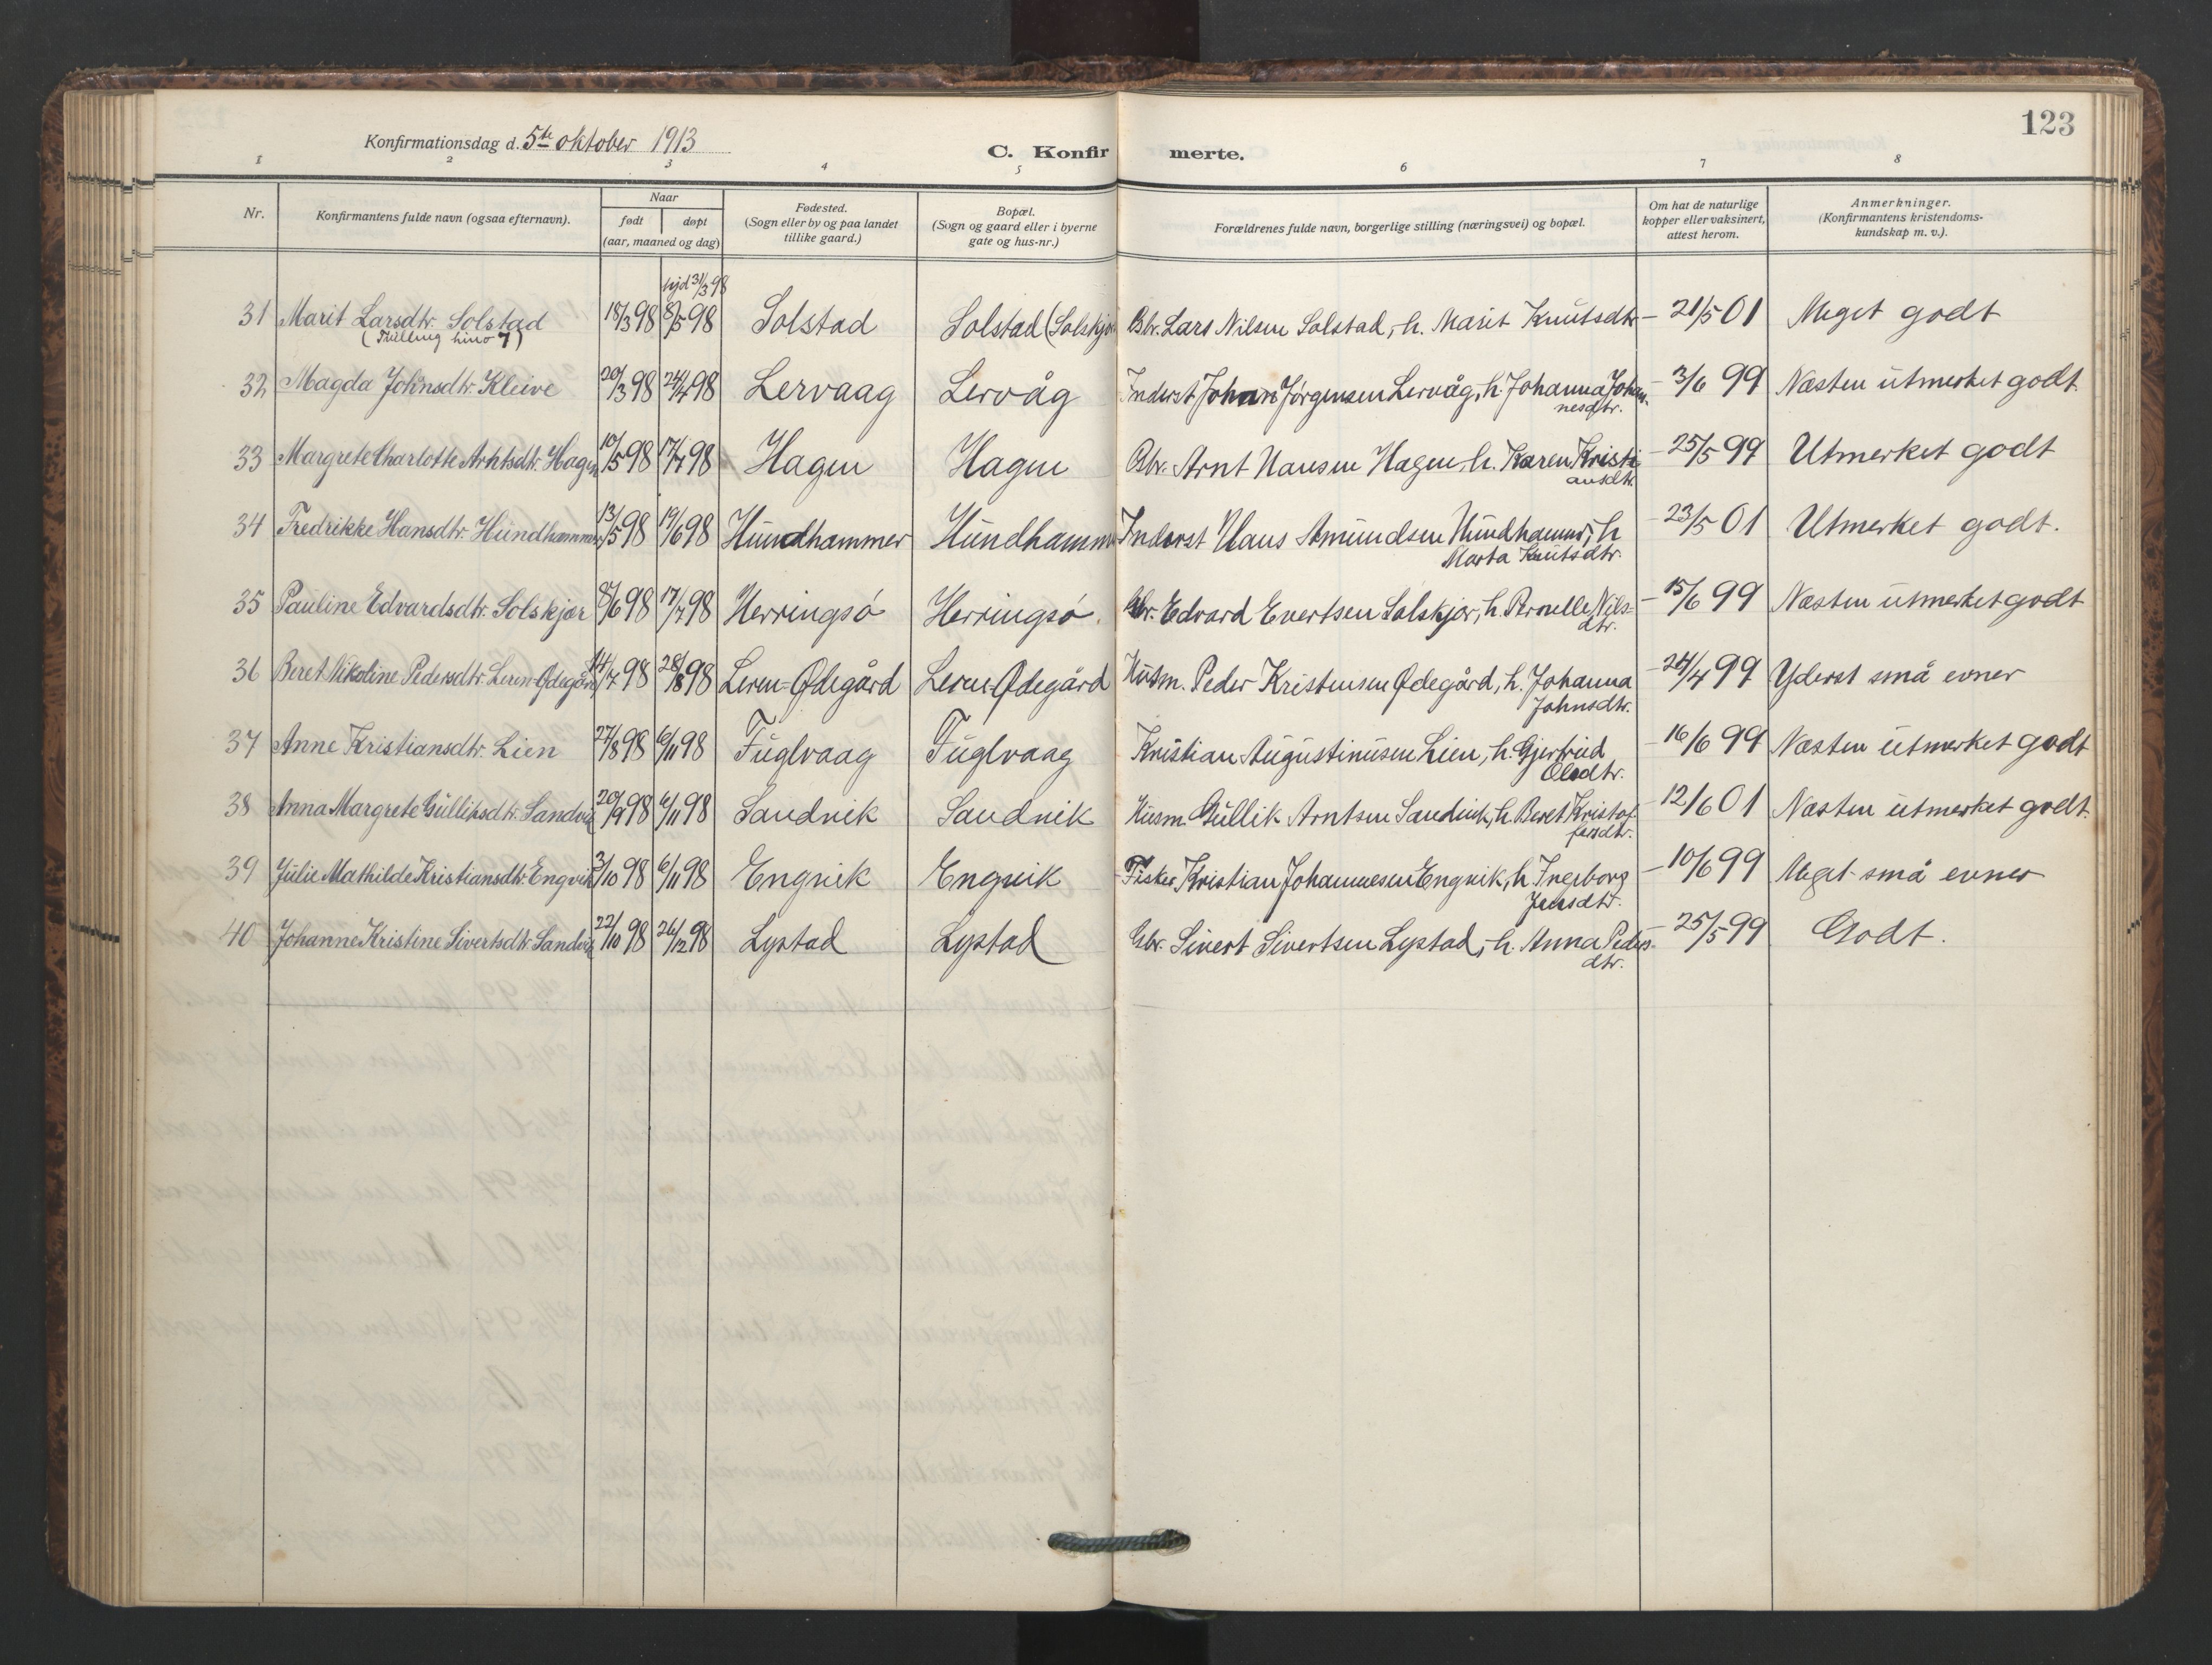 123
Konfirmationsdag d. 5te oktober 1913
C. Konfirmerte.
1 2 3 4 5 6 7 8
Nr.
Konfirmantens fulde navn (ogsaa efternavn).
Naar
født døpt
(aar, maaned og dag)
Fødested.
(Sogn eller by og paa landet
tillike gaard.)
Bopæl.
(Sogn og gaard eller i byerne
gate og hus-nr.)
Forældrenes fulde navn, borgerlige stilling (næringsvei) og bopæl.
Om hat de naturlige
kopper eller vaksinert,
attest herom.
Anmerkninger.
(Konfirmantens kristendoms-
kundskap m. v.).
hjd 31/3 98
31 Marit Larsdtr. Solstad 18/3 98 8/5 98 Solstad Solstad (Solskjer Gbr. Lars Nilsen Solstad, h. Marit Knutsdtr - 21/5 01 Meget godt
(Tvilling
32 Magda Johnsdtr. Kleive 20/3 98 24/4 98 Lervaag Lervåg Inderst Johan Jørgensen Lervåg, h. Johanna Johan- - 3/6 99 Næsten utmerket godt
nesdtr.
33 Margrete Charlotte Arntsdtr. Hagen 10/5 98 17/7 98 Hagen Hagen Gbr. Arnt Hansen Hagen, h. Karen Kristi - 25/5 99 Utmerket godt
ansdtr.
34 Fredrikke Hansdtr. Hundhammer 13/5 98 19/6 98 Hundhammer Hundhamme Inderst Hans Amundsen Hundhammer, h - 23/5 01 Utmerket godt.
Marta Knutsdtr.
35 Pauline Edvardsdtr. Solskjær 8/6 98 17/7 98 Herringsø Herringsø. Gbr. Edvard Evertsen Solskjær, h. Pernelle Nils- - 15/6 99 Næsten utmerket godt
dtr.
36 Beret Nikoline Pedersdtr. Leren-Ødegård 14/7 98 28/8 98 Leren-Ødegård Leren-Ødegård Husm. Peder Kristensen Ødegård, h. Johanna - 24/4 99 Yderst små evner
Johnsdtr.
37 Anne Kristiansdtr. Lien 27/8 98 6/11 98 Fuglvaag Fuglvaag Kristian Augustinusen Lien, h. Gjertrud - 16/6 99 Næsten utmerket godt
Olsdtr.
38 Anna Margrete Gulliksdtr. Sandvik 20/9 98 6/11 98 Sandvik Sandvik Husm. Gullik Arntsen Sandvik, h. Beret Kristof- - 12/6 01 Næsten utmerket godt.
fersdtr.
39 Julie Mathilde Kristiansdtr. Engvik 3/10 98 6/11 98 Engvik Engvik Fisker Kristian Johannesen Engvik, h. Ingeborg - 10/6 99 Meget små evner
Jensdtr.
40 Johanne Kristine Sivertsdtr. Sandvik 22/10 98 26/12 98 Lystad Lystad Gbr. Sivert Sivertsen Lystad, h. Anna Peders- - 25/5 99 Godt.
dtr.